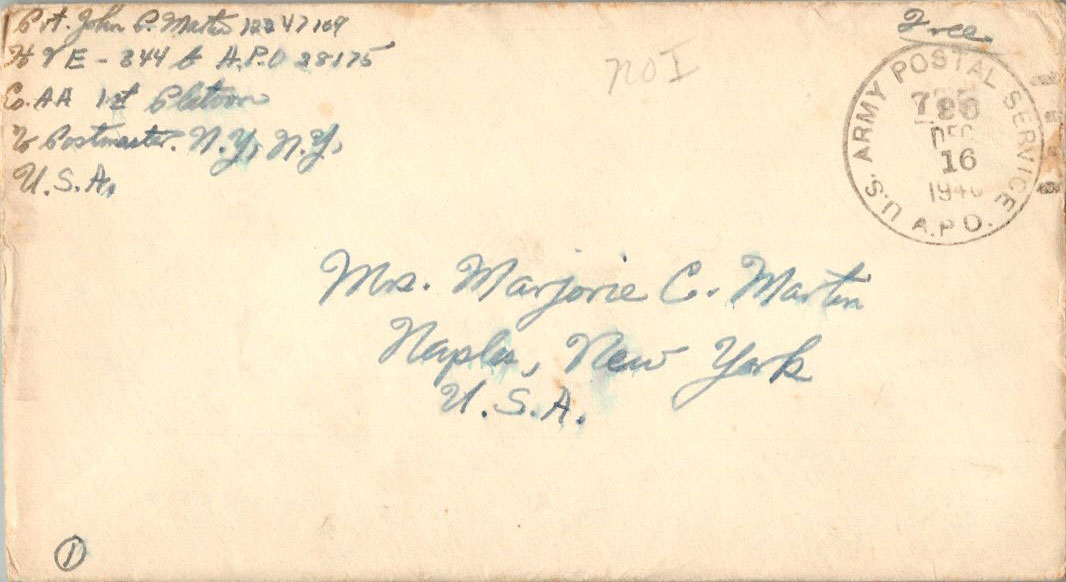 Pvt. John C. Martin 12247109
H V E - 244 A A.P.O 28175
Co. AA 1st Platoon
% Postmaster. N.Y, N.Y,
U.S.A.
Free
no I
U.S. ARMY POSTAL SERVICE
DEC
16
A.P.O.
Mrs. Marjorie C. Martin
Naples, New York
U.S.A.
1